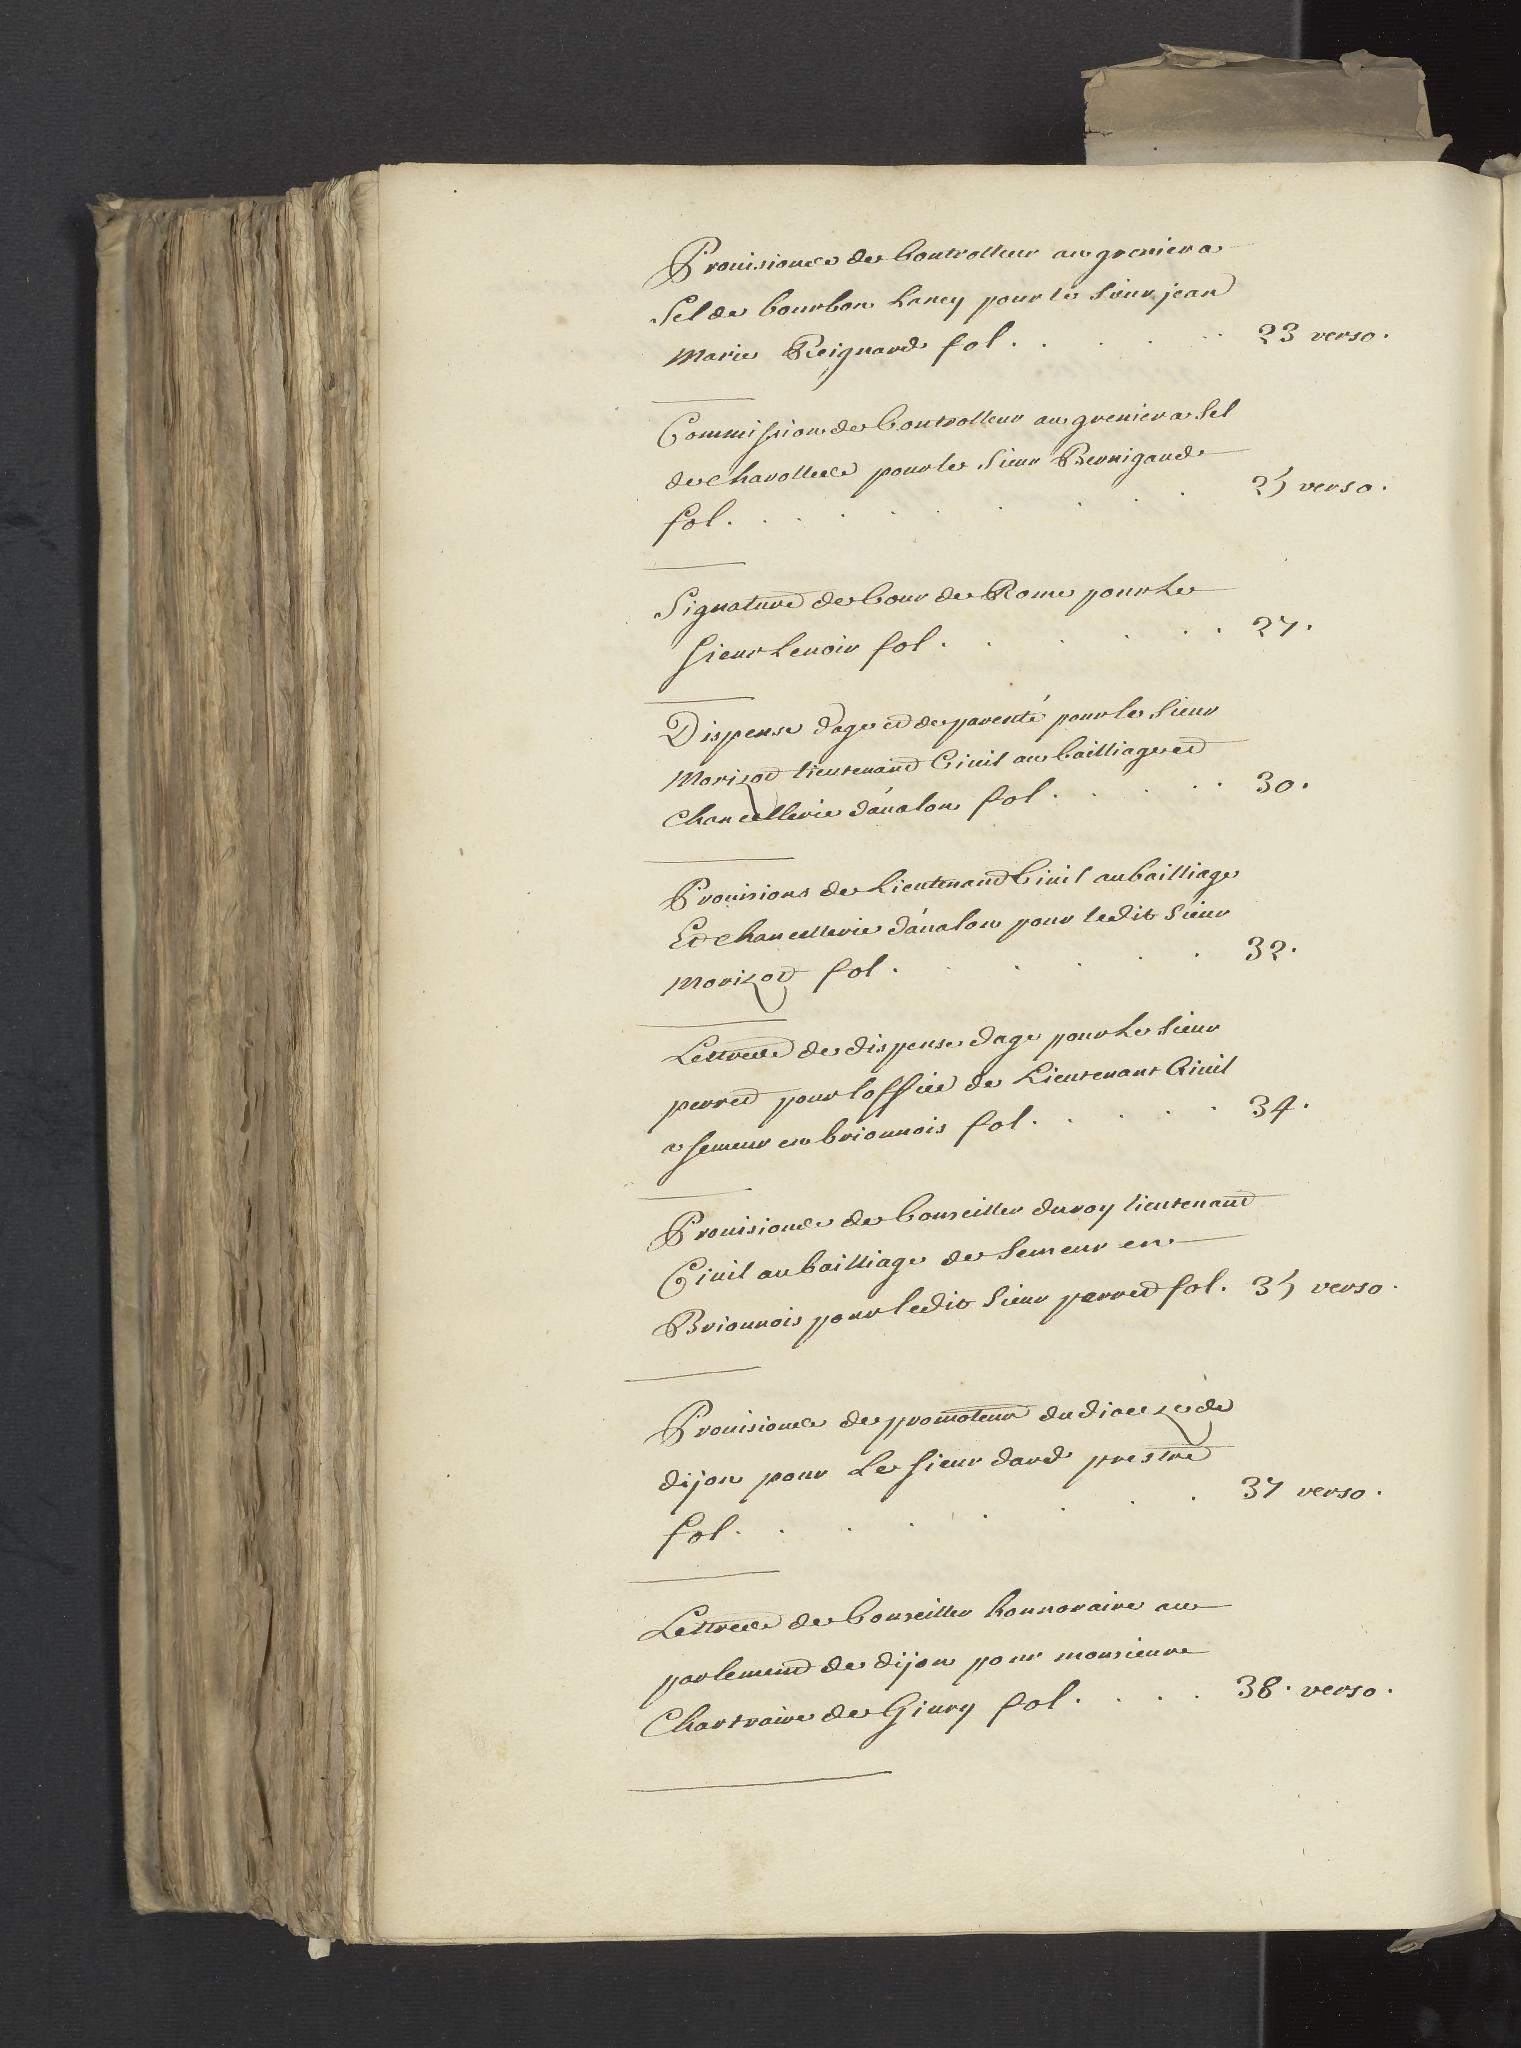 Prouisions de Controlleur au grenier a
Sel de bourbon Lancy pour le Sieur jean
Marie Reignard fol. . . . . . 23 verso.
Commission de Controlleur au grenier a Sel
de charolles pour le Sieur Bernigaud
fol. . . . . . . . . 25 verso.
Signature de Cour de Rome pour Le
Sieur Lenoir fol. . . . . . 27.
Dispense d'age et de parenté pour le Sieur
Morizot lieutenant Ciuil au bailliage et
chancellerie d'aualon fol. . . . . . 30.
Prouisions de Lieutenant Ciuil au bailliage
Et chancellerie d'aualon pour ledit Sieur
Morizot fol. . . . . . 32.
Lettres de dispense dage pour Le Sieur
perret pour loffice de Lieutenant Ciuil
a Semeur en brionnois fol. . . . . 34.
Prouisions de Conseiller du roy lieutenant
Ciuil au bailliage de Semeur en
Brionnois pour ledit Sieur perret fol. 35 verso.
Prouisions de promoteur du dioceze de
dijon pour Le Sieur dard prestre
fol. . . . . . . . 37 verso.
Lettres de Conseiller honnoraire au
parlement de dijon pour monsieur
Chartraire de Giury fol. . . . 38. verso.